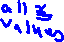 all x
values